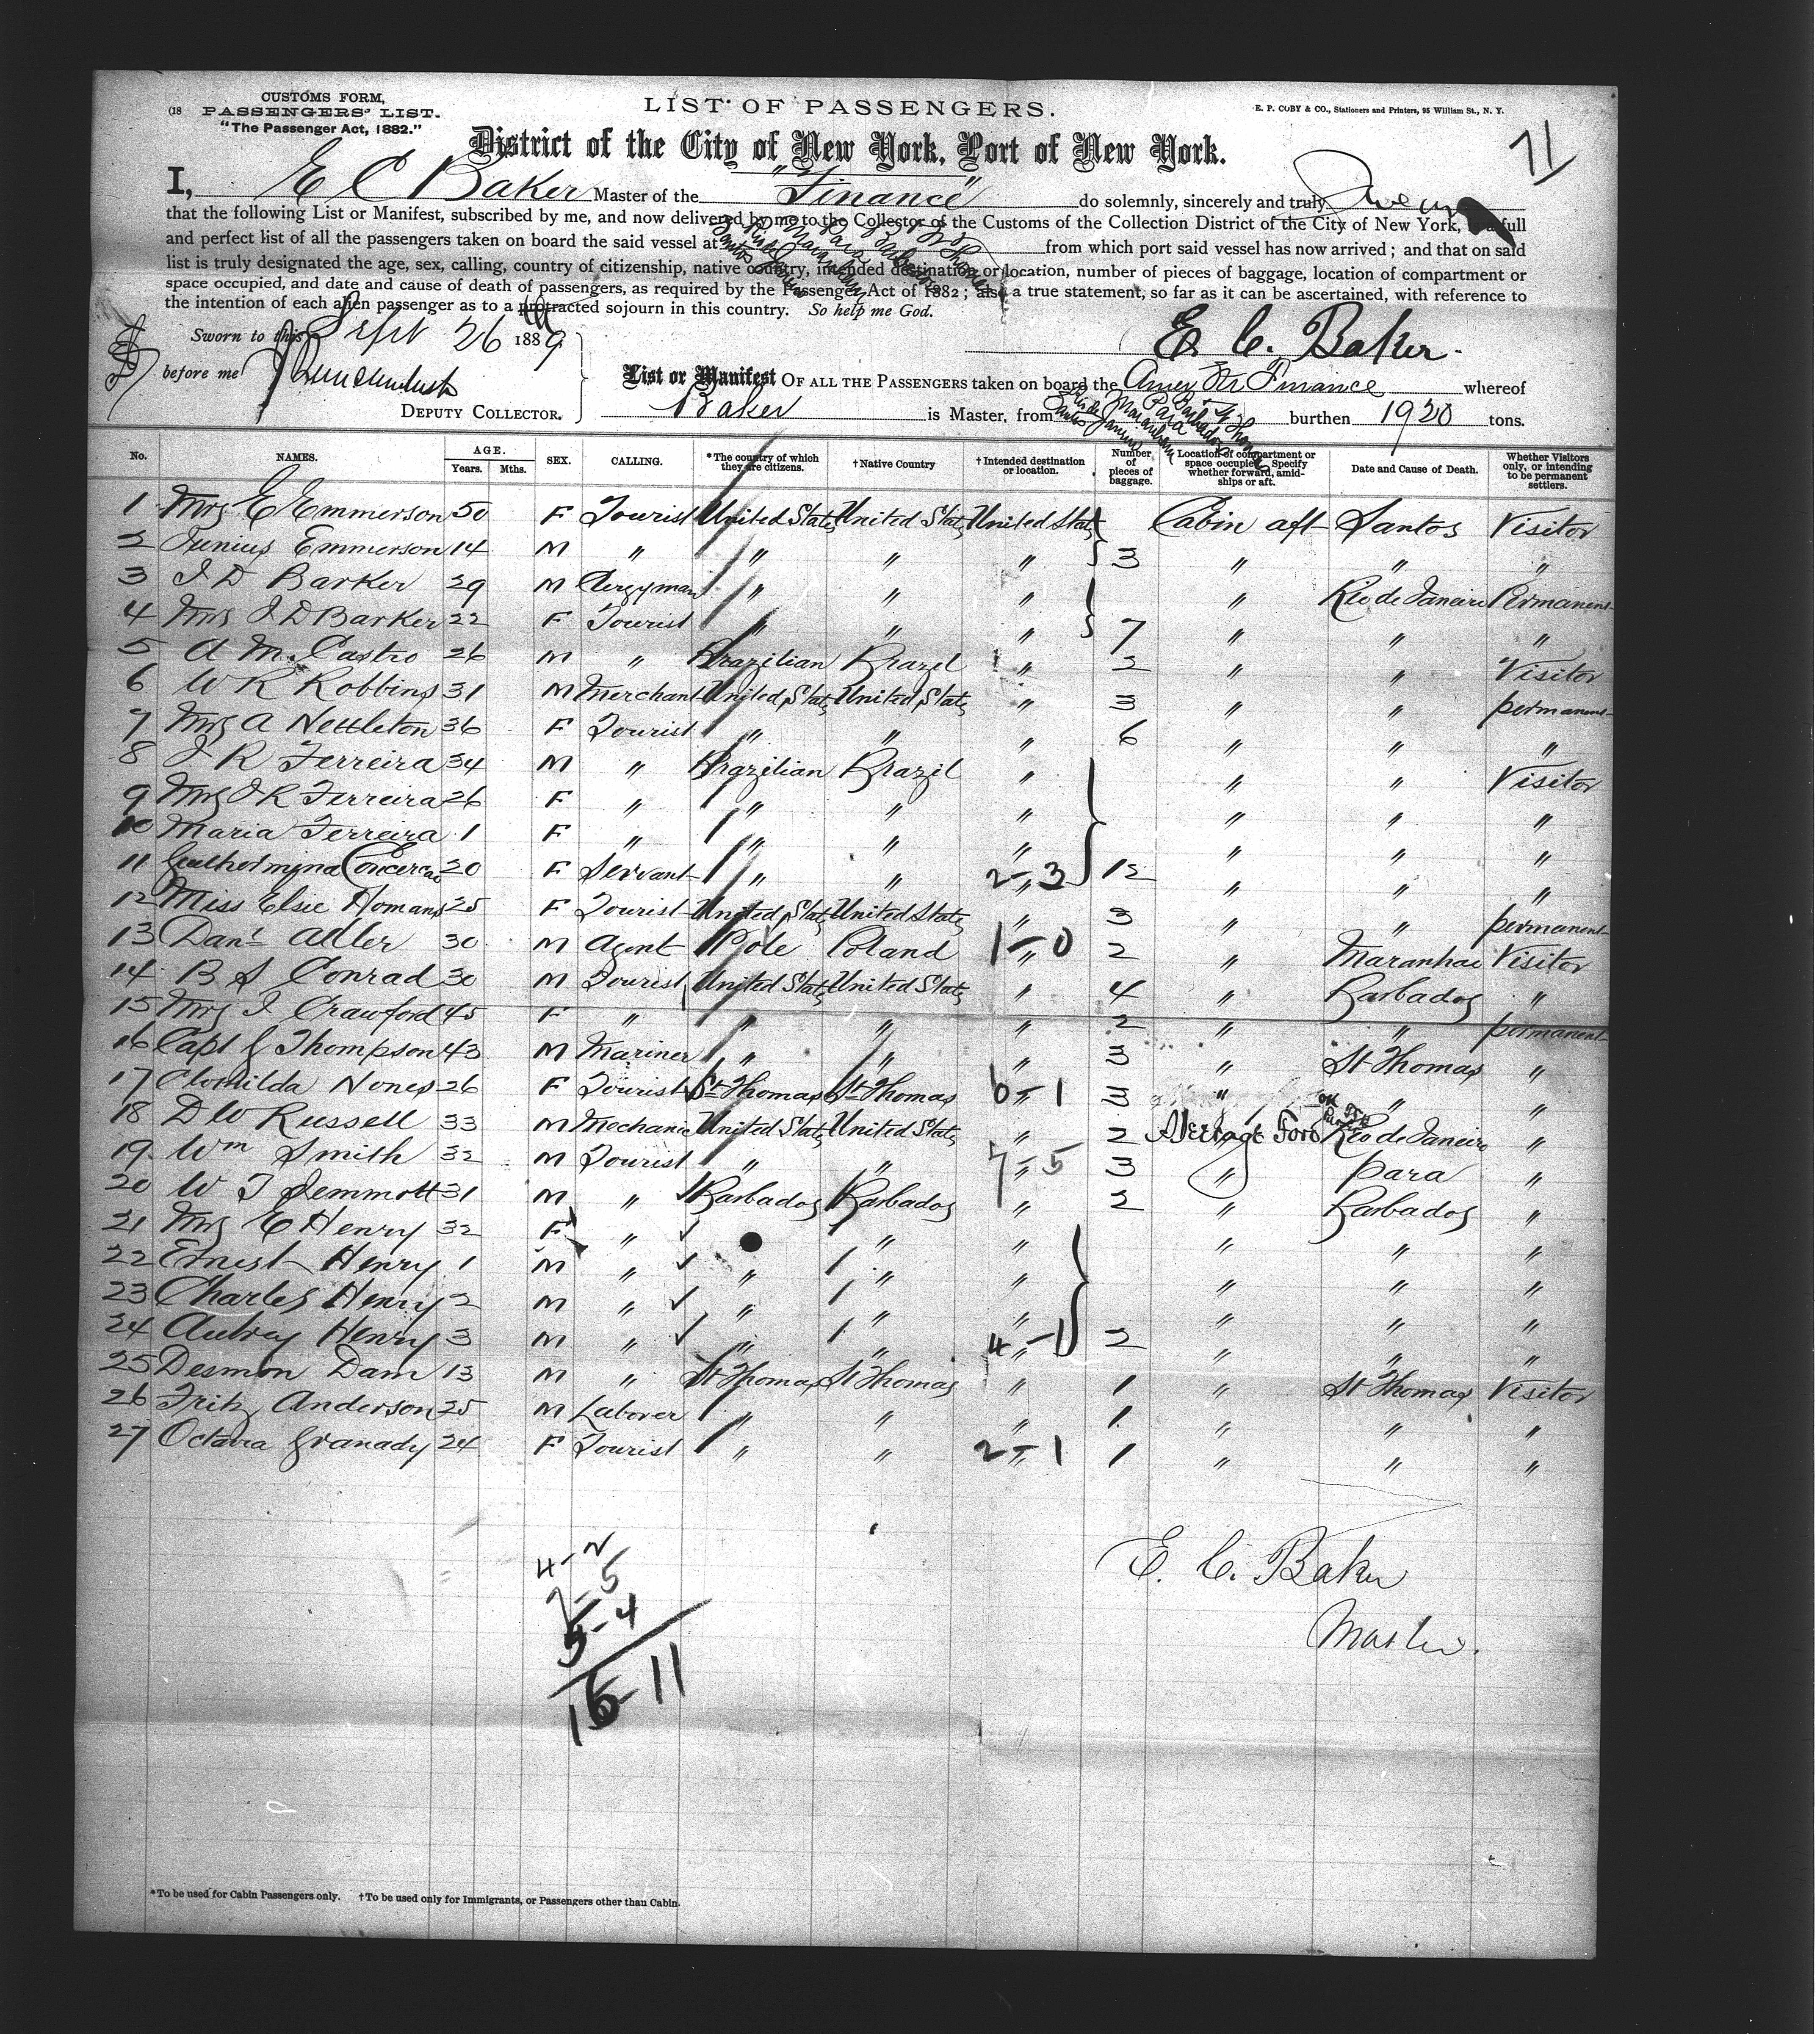 CUSTOMS FORM,
(18 PASSENGERS' LIST.
"The Passenger Act, 1882."
LIST OF PASSENGERS.
E. P. COBY & CO., Stationers and Printers, 95 William St., N. Y.
71
District of the City of New York, Port of New York.
I, E C Baker Master of the "Finance" do solemnly, sincerely and truly Swear
that the following List or Manifest, subscribed by me, and now delivered by me to the Collector of the Customs of the Collection District of the City of New York, is a full
and perfect list of all the passengers taken on board the said vessel at Santos Rio de Janeiro Maranham Para Barbados St Thomas from which port said vessel has now arrived; and that on said
list is truly designated the age, sex, calling, country of citizenship, native country, intended destination or location, number of pieces of baggage, location of compartment or
space occupied, and date and cause of death of passengers, as required by the Passenger Act of 1882; also a true statement, so far as it can be ascertained, with reference to
the intention of each alien passenger as to a protracted sojourn in this country. So help me God.
Sworn to this Sept 26 1889
E. C. Baker
before me
DEPUTY COLLECTOR.
List or Manifest OF ALL THE PASSENGERS taken on board the Amer Str Finance whereof
Baker is Master, from Santos Rio de Janeiro Maranham Para Barbados St Thomas burthen 1920 tons.
No. NAMES. AGE. Years. Mths. SEX. CALLING. *The country of which they are citizens. †Native Country †Intended destination or location. Number of pieces of baggage. Location of compartment or space occupied. Specify whether forward, amidships or aft. Date and Cause of Death. Whether Visitors only, or intending to be permanent settlers.
1 Mrs E Emmerson 50 F Tourist United States United States United States Cabin aft Santos Visitor
2 Junius Emmerson 14 M " " " " 3 " " "
3 J D Barker 29 M Clergyman " " " " Rio de Janeiro Permanent
4 Mrs J D Barker 22 F Tourist " " " 7 " " "
5 A M. Castro 26 M " Brazilian Brazil " 2 " " Visitor
6 W R Robbins 31 M Merchant United States United States " 3 " " permanent
7 Mrs A Nettleton 36 F Tourist " " " 6 " " "
8 J R Ferreira 34 M " Brazilian Brazil " " " Visitor
9 Mrs J R Ferreira 26 F " " " " " " "
10 Maria Ferreira 1 F " " " " " " "
11 20 F Servant " " " 2-3 12 " " "
12 Miss Elsie Homans 25 F Tourist United States United States " 3 " " permanent
13 Danl Adler 30 M Agent Pole Poland " 1-0 2 " Maranhao Visitor
14 B S Conrad 30 M Tourist United States United States " 4 " Barbados "
15 Mrs J Crawford 45 F " " " " 2 " " permanent
16 Capt J Thompson 43 M Mariner " " " 3 " St Thomas "
17 Clotilda Nones 26 F Tourist St Thomas St Thomas " 6-1 3 " " "
18 D W Russell 33 M Mechanic United States United States " 2 Steerage Ford Rio de Janeiro "
19 Wm Smith 32 M Tourist " " " 7-5 3 " Para "
20 W T Jemmott 31 M " Barbados Barbados " 2 " Barbados "
21 Mrs E Henry 32 F " " " " " "
22 Ernest Henry 1 M " " " " " " "
23 Charles Henry 2 M " " " " " " "
24 Aubrey Henry 3 M " " " " 4-1 2 " " "
25 Desmon Dam 13 M " St Thomas St Thomas " 1 " St Thomas Visitor
26 Fritz Anderson 25 M Laborer " " " 1 " " "
27 Octavia Granady 24 F Tourist " " " 2-1 1 " " "
4-2
7-5
5-4
16-11
E. C. Baker
Master.
*To be used for Cabin Passengers only. †To be used only for Immigrants, or Passengers other than Cabin.